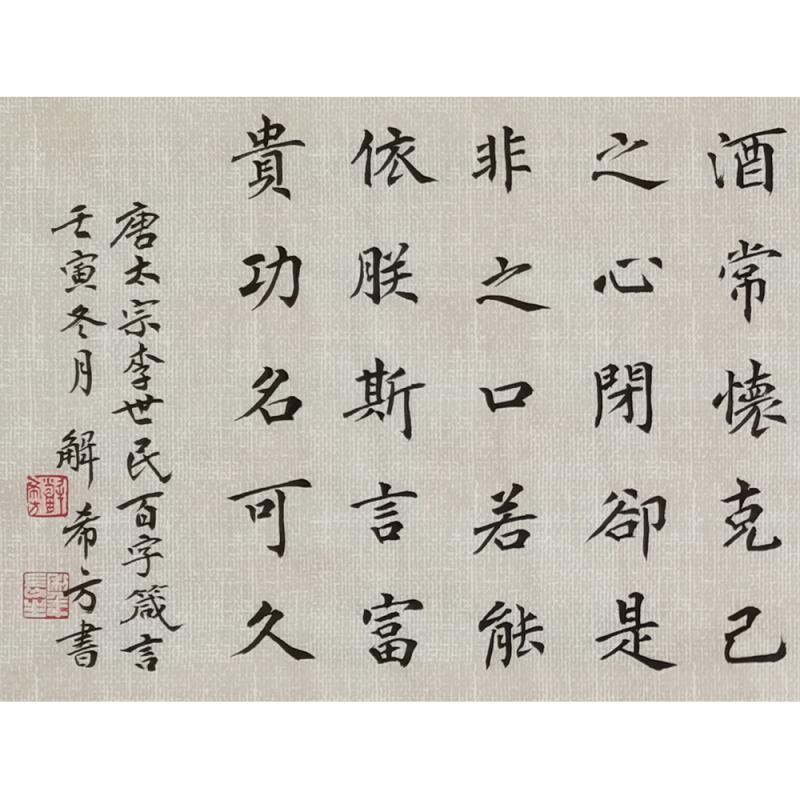 酒常懷克己
之心閉卻是
非之口若能
依朕斯言富
貴功名可久
唐太宗李世民百字箴言
壬寅冬月 解希方書